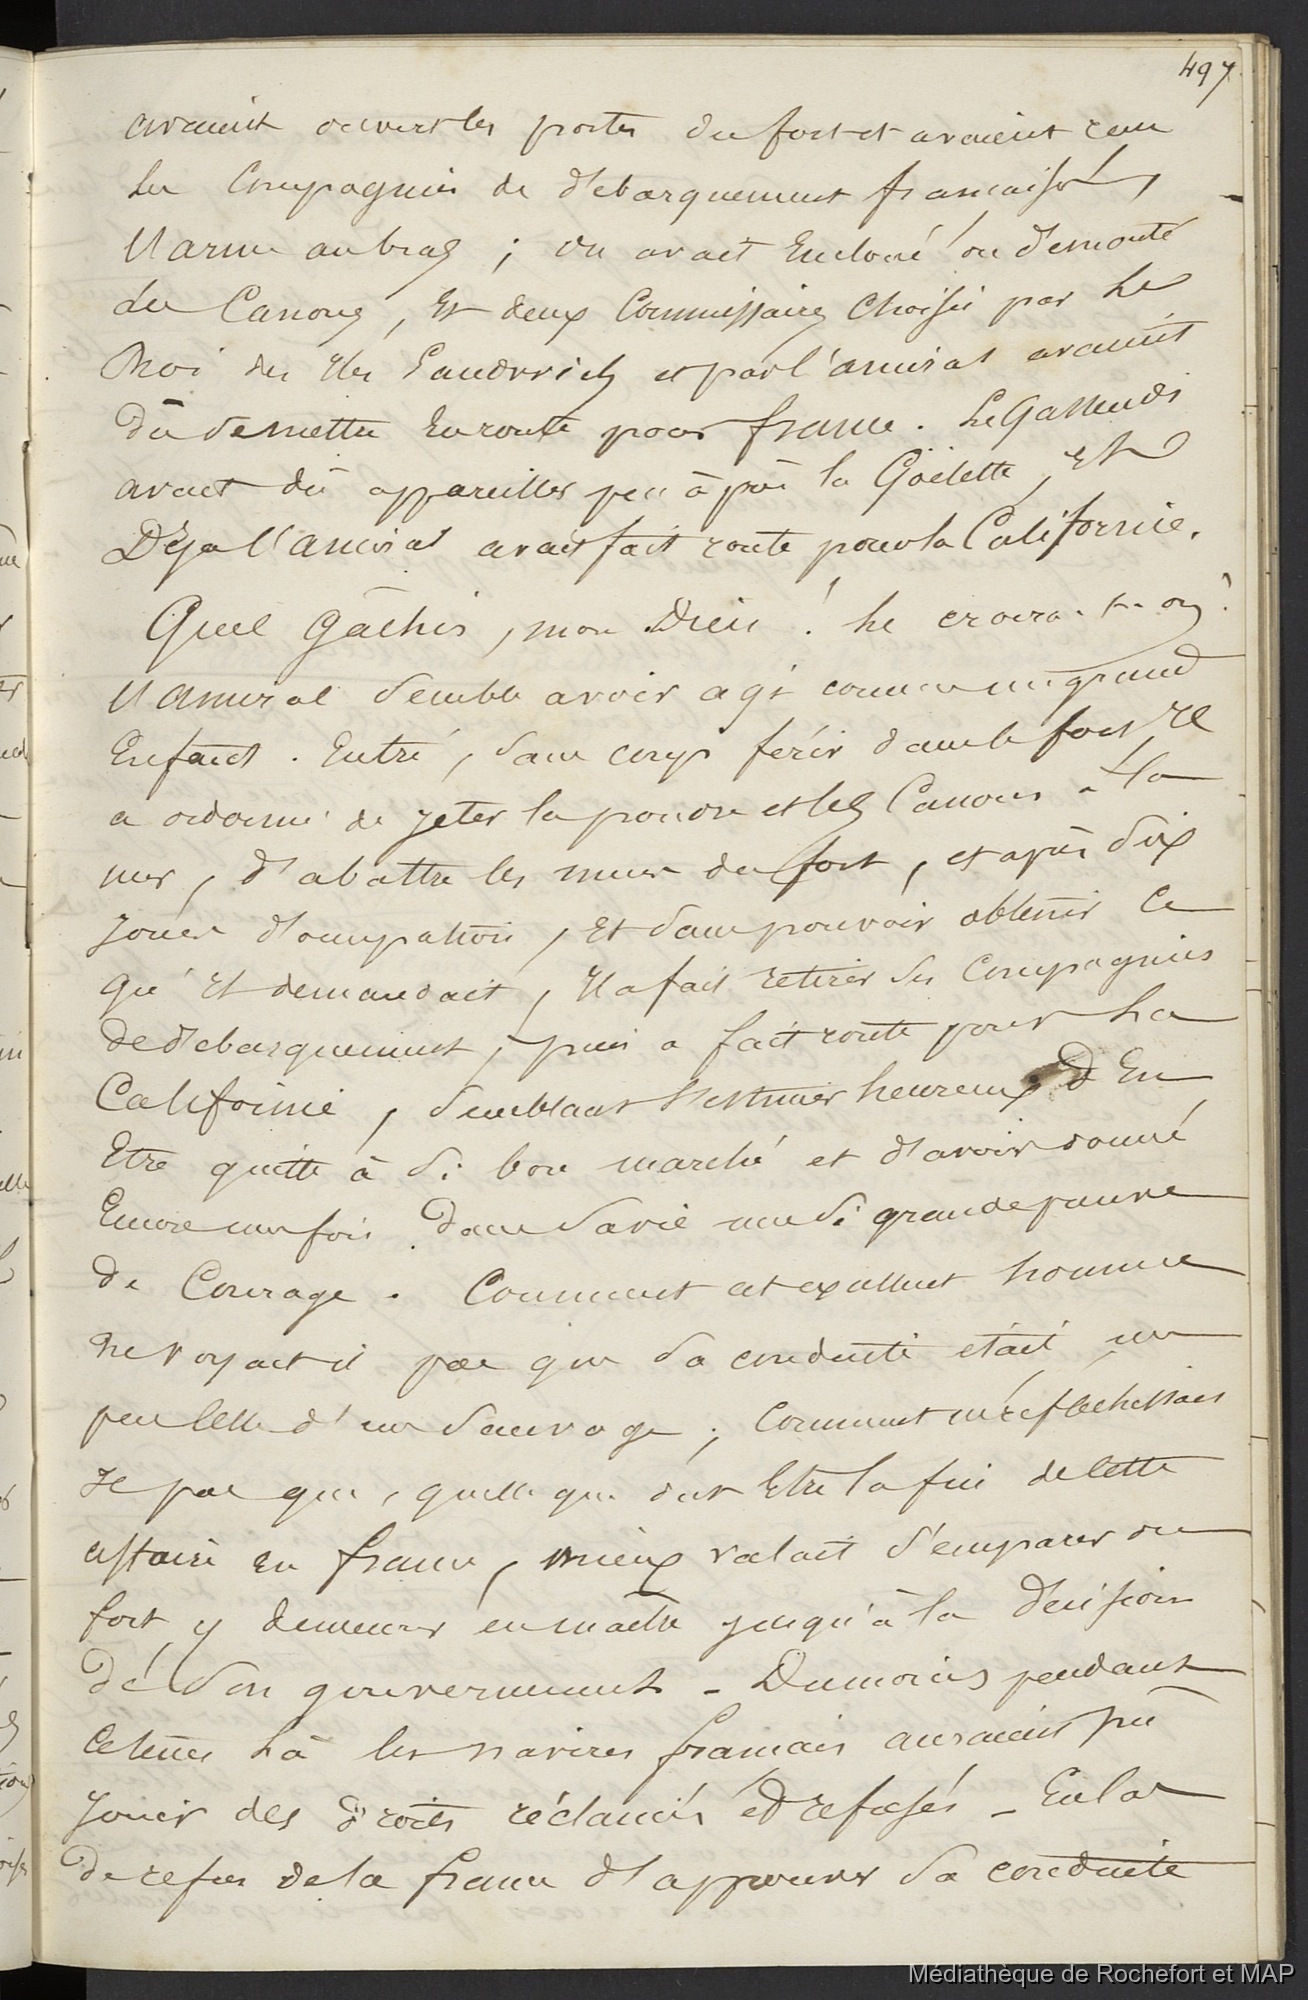 497
avaient ouvert les portes du fort et avaient reçu
les Compagnies de débarquement françaises,
l'arme au bras ; on avait Encloué ou démonté
les Canons, Et deux Commissaires choisis par le
Roi des Iles Sandwich et par l'amiral avaient
dû se mettre En route pour france. Le Gassendi
avait dû appareiller peu après la Goëlette, Et
Déja l'amiral avait fait route pour la Californie.
Quel Gâchis, mon Dieu ! le croira-t-on ?
l'amiral semble avoir agi comme un grand
Enfant. Entré, sans coup férir dans le fort, Il
a ordonné de jeter la poudre et les Canons à la
mer, d'abattre les murs du fort, et après dix
jours d'occupation, Et sans pouvoir obtenir ce
qu'Il demandait, Il a fait retirer ses Compagnies
de débarquement, puis a fait route pour la
Californie, semblant s'estimer heureux d'En
Etre quitte à si bon marché et d'avoir donné
Encore une fois dans sa vie une si grande preuve
de Courage. Comment cet excellent homme
ne voyait il pas que sa conduite était un
peu celle d'un sauvage ; comment ne réfléchissait
Il pas que, quelle que dût Etre la fin de cette
affaire en france, mieux valait s'emparer du
fort y demeurer en maître jusqu'à la décision
de son gouvernement - Du moins pendant
ce tems là les navires français auraient pu
jouir des droits réclamés et refusés - En cas
de refus de la france d'approuver sa conduite
Médiathèque de Rochefort et MAP